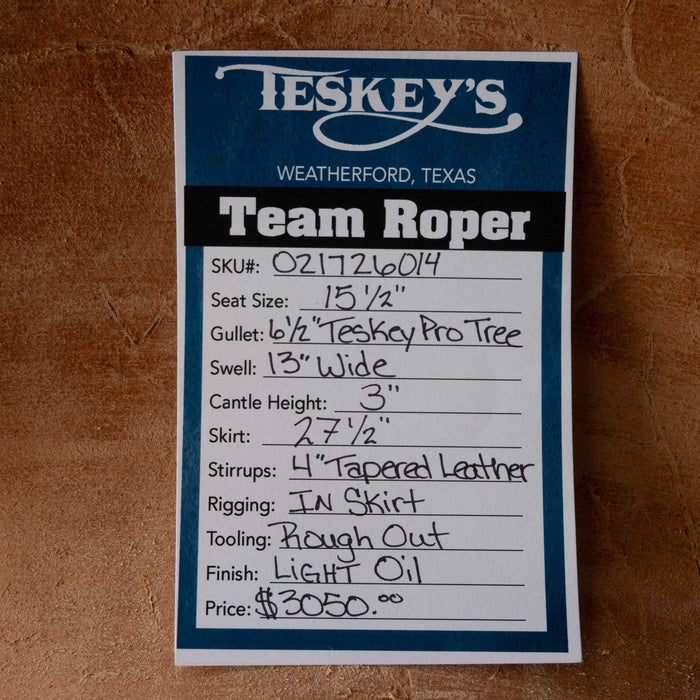 TESKEY'S
WEATHERFORD, TEXAS
Team Roper
SKU#: 021726014
Seat Size: 15 1/2"
Gullet: 6 1/2" Teskey Pro Tree
Swell: 13" Wide
Cantle Height: 3"
Skirt: 27 1/2"
Stirrups: 4" Tapered Leather
Rigging: IN Skirt
Tooling: Rough Out
Finish: LIGHT Oil
Price: $3050.00